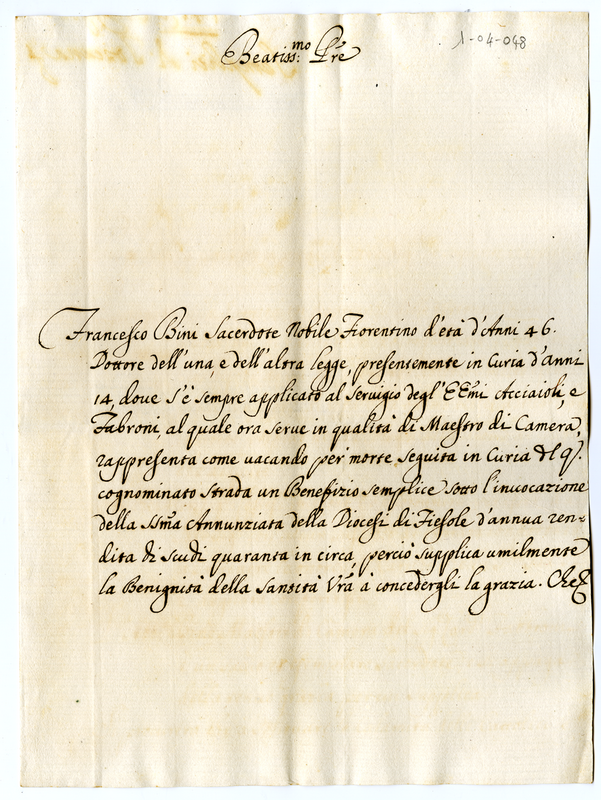 1-04-048
Beatiss:mo Pre
Francesco Bini Sacerdote Nobile Fiorentino d'età d'Anni 46.
Dottore dell'una, e dell'altra legge, presentemente in Curia d'anni
14, dove s'è sempre applicato al servigio degl'EEmi Acciaioli, e
Fabroni, al quale ora serve in qualità di Maestro di Camera,
rappresenta come vacando per morte seguita in Curia del q.
cognominato Strada un Benefizio semplice sotto l'invocazione
della SSma Annunziata della Diocesi di Fiesole d'annua ren-
dita di scudi quaranta in circa, perciò supplica umilmente
la Benignità della Santità Vra à concedergli la grazia. Che &